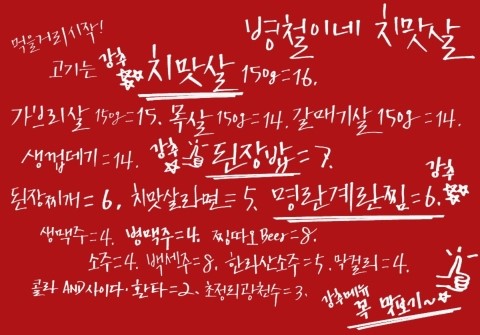 먹을거리시작!
병철이네 치맛살
고기는 강추 치맛살 150g=16.
가브리살 150g=15. 목살 150g=14. 갈매기살 150g=14.
생껍데기=14. 강추 된장밥=7.
강추
된장찌개=6. 치맛살라면=5. 명란계란찜=6.
생맥주=4. 병맥주=4. 찡따오Beer=8.
소주=4. 백세주=8. 한라산소주=5. 막걸리=4.
콜라 AND 사이다·환타=2. 초정리광천수=3.
강추메뉴 꼭 맛보기~